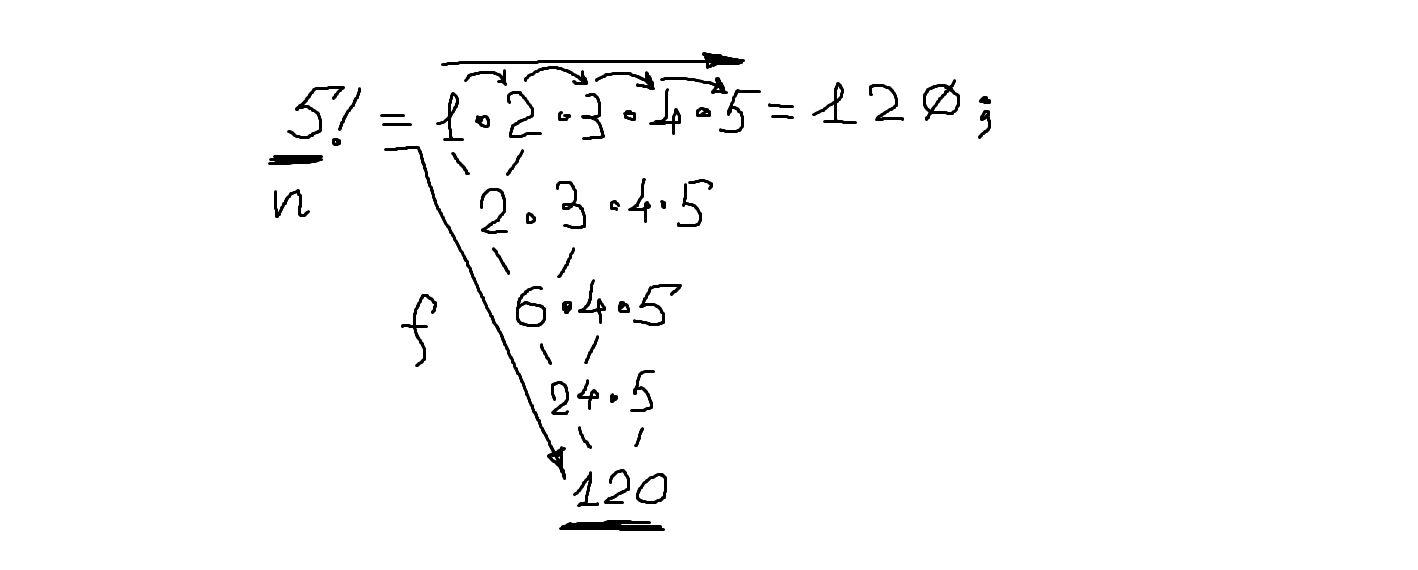 5! = 1 · 2 · 3 · 4 · 5 = 120;
n
2 · 3 · 4 · 5
6 · 4 · 5
f
24 · 5
120